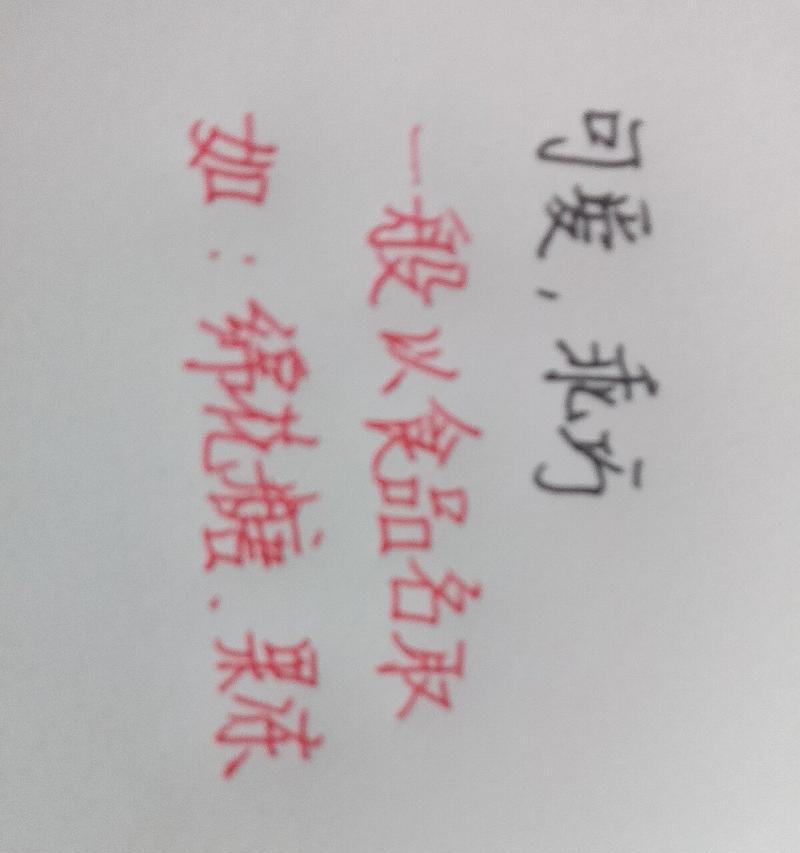 可爱，乖方
一般以食品名取
如：绵花糖、果冻